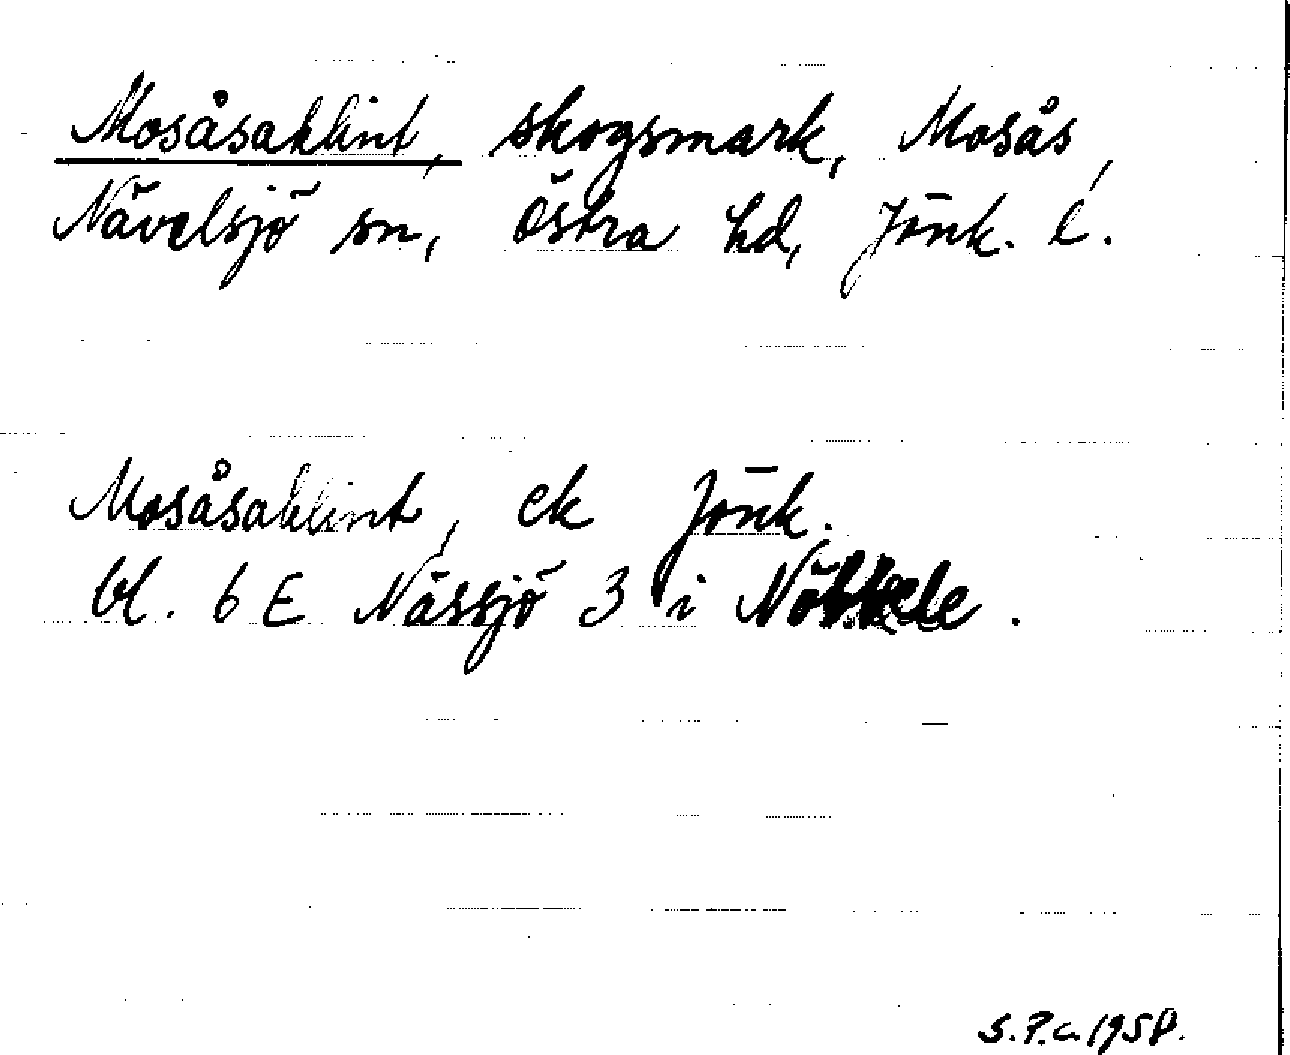 Mosåsaklint, skogsmark, Mosås,
Nävelsjö sn, Östra hd, Jönk. l.
Mosåsaklint, ek Jönk.
bl. 6 E Nässjö 3 i Nöbbele.
S.P.C. 1958.